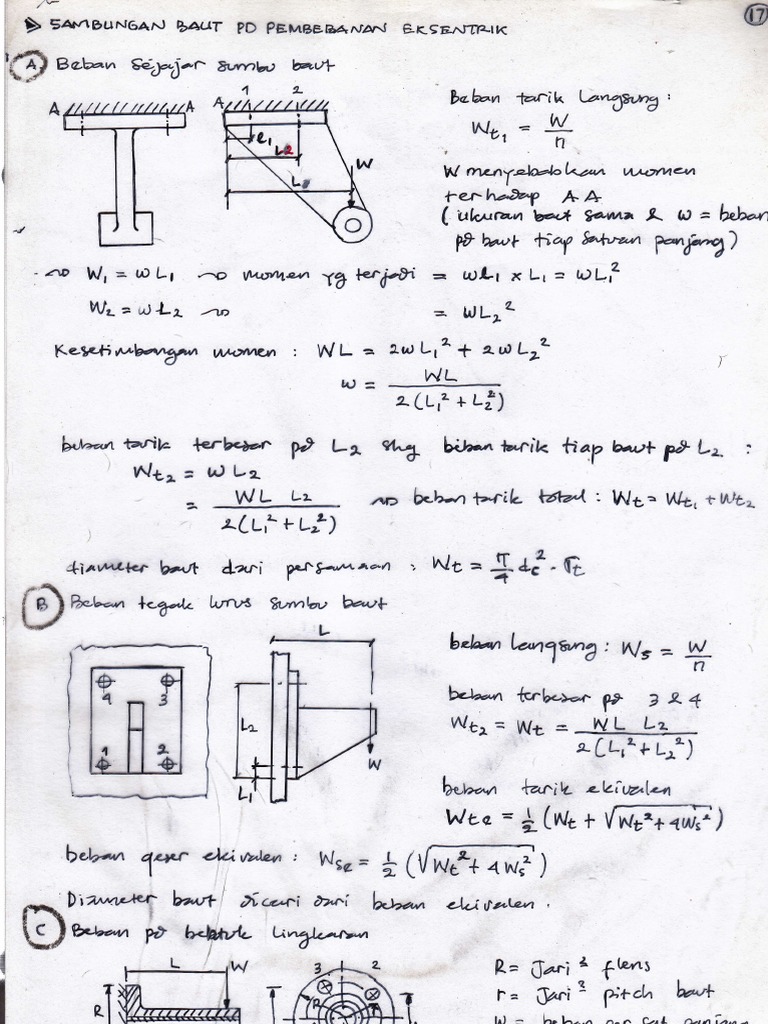 17
SAMBUNGAN BAUT PD PEMBEBANAN EKSENTRIK
A Beban sejajar sumbu baut
A A A 1 2
L1
L2
L
W
Beban tarik langsung :
Wt1 = W/n
W menyebabkan momen
terhadap A A
(ukuran baut sama & w = beban
pd baut tiap satuan panjang)
W1 = wL1 ~> momen yg terjadi = wL1 x L1 = wL1²
W2 = wL2 ~> = wL2²
Kesetimbangan momen : WL = 2wL1² + 2wL2²
w = WL / 2(L1² + L2²)
beban tarik terbesar pd L2 shg beban tarik tiap baut pd L2 :
Wt2 = wL2
= WL L2 / 2(L1² + L2²) ~> beban tarik total : Wt = Wt1 + Wt2
diameter baut dari persamaan : Wt = π/4 dc² . σt
B Beban tegak lurus sumbu baut
L
4 3
1 2
L2
L1
W
beban langsung : Ws = W/n
beban terbesar pd 3 & 4
Wt2 = Wt = WL L2 / 2(L1² + L2²)
beban tarik ekivalen
Wte = 1/2 (Wt + √Wt² + 4Ws²)
beban geser ekivalen : Wse = 1/2 (√Wt² + 4Ws²)
Diameter baut dicari dari beban ekivalen.
C Beban pd bentuk lingkaran
L W
R
3 2
R
R = Jari² flens
r = Jari² pitch baut
w = beban per sat panjang